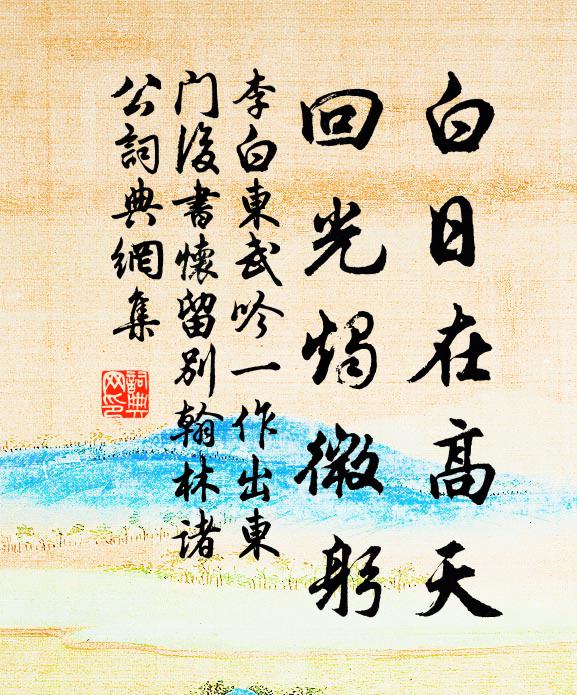 白日在高天
回光燭微躬
李白東武吟一作出東
门後書懷留别翰林诸
公詞典網集
詞典
网印